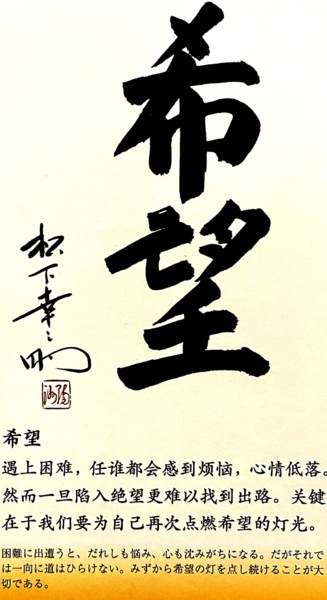 希望
松下幸之助
希望
遇上困难，任谁都会感到烦恼，心情低落。
然而一旦陷入绝望更难以找到出路。关键
在于我们要为自己再次点燃希望的灯光。
困難に出遭うと、だれしも悩み、心も沈みがちになる。だがそれで
は一向に道はひらけない。みずから希望の灯を点し続けることが大
切である。